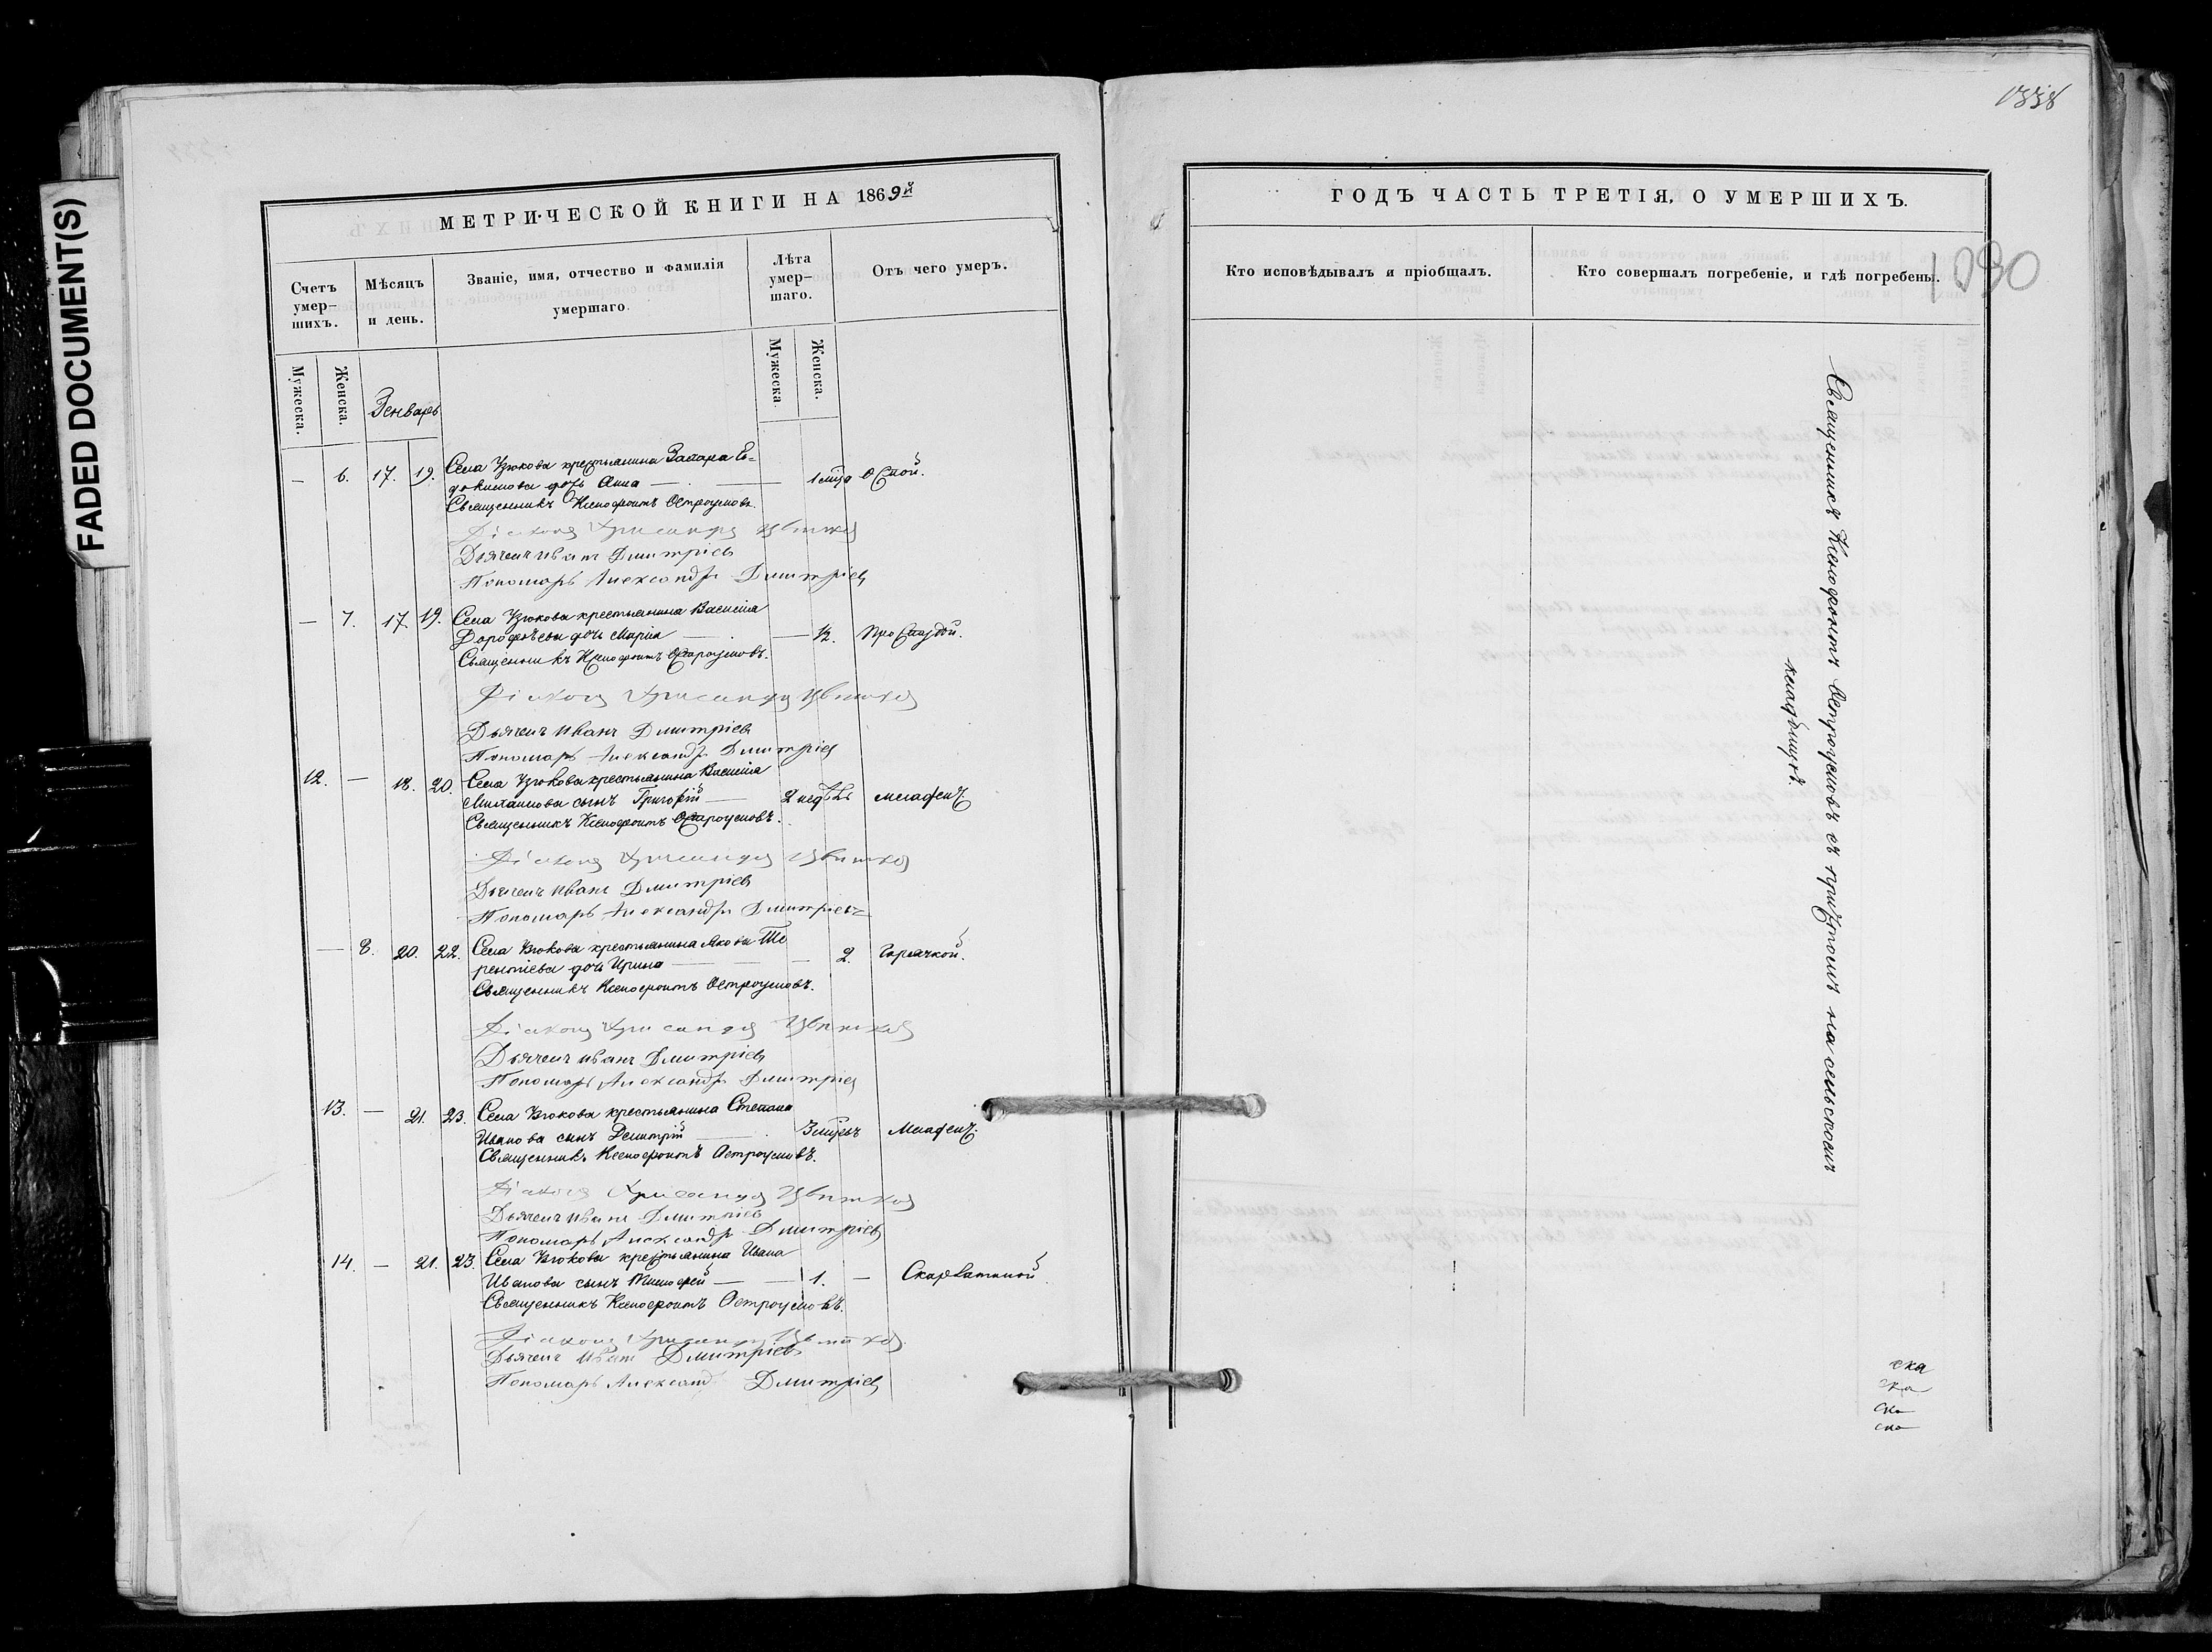 FADED DOCUMENT(S)
МЕТРИЧЕСКОЙ КНИГИ НА 1869й
Счетъ умер-шихъ.
Мѣсяцъ и день.
Званіе, имя, отчество и фамилія умершаго.
Лѣта умер-шаго.
Отъ чего умеръ.
Мужеска.
Женска.
Генварь
Мужеска.
Женска.
— 6. 17. 19. Села Узюкова крестьянина Захара Ев=
докимова дочь Анна — 1 мца Оспой.
Священникъ Ксенофонтъ Остроумовъ.
Діаконъ Хрисанфъ Цвѣтковъ
Дьячекъ Иванъ Дмитріевъ
Пономарь Александръ Дмитріевъ
— 7. 17. 19. Села Узюкова крестьянина Василія
Дорофѣева дочь Марія — 12. Простудой.
Священникъ Ксенофонтъ Остроумовъ.
Діаконъ Хрисанфъ Цвѣтковъ
Дьячекъ Иванъ Дмитріевъ
Пономарь Александръ Дмитріевъ
12. — 18. 20. Села Узюкова крестьянина Василія
Михайлова сынъ Григорій — 2 недѣль младенч.
Священникъ Ксенофонтъ Остроумовъ.
Діаконъ Хрисанфъ Цвѣтковъ
Дьячекъ Иванъ Дмитріевъ
Пономарь Александръ Дмитріевъ
— 8. 20. 22. Села Узюкова крестьянина Якова Те
рентіева дочь Ирина — 2. Горячкой.
Священникъ Ксенофонтъ Остроумовъ.
Діаконъ Хрисанфъ Цвѣтковъ
Дьячекъ Иванъ Дмитріевъ
Пономарь Александръ Дмитріевъ
13. — 21. 23. Села Узюкова крестьянина Степана
Иванова сынъ Димитрій — 3 мцевъ Младенч.
Священникъ Ксенофонтъ Остроумовъ.
Діаконъ Хрисанфъ Цвѣтковъ
Дьячекъ Иванъ Дмитріевъ
Пономарь Александръ Дмитріевъ
14. — 21. 23. Села Узюкова крестьянина Ивана
Иванова сынъ Тимофей — 1. — Скарлатиной.
Священникъ Ксенофонтъ Остроумовъ.
Діаконъ Хрисанфъ Цвѣтковъ
Дьячекъ Иванъ Дмитріевъ
Пономарь Александръ Дмитріевъ
1338
ГОДЪ ЧАСТЬ ТРЕТІЯ, О УМЕРШИХЪ.
Кто исповѣдывалъ и пріобщалъ.
Кто совершалъ погребеніе, и гдѣ погребены.
1090
Священникъ Ксенофонтъ Остроумовъ съ причтомъ на сельскомъ
кладбищѣ.
ска
ска
ска
ска